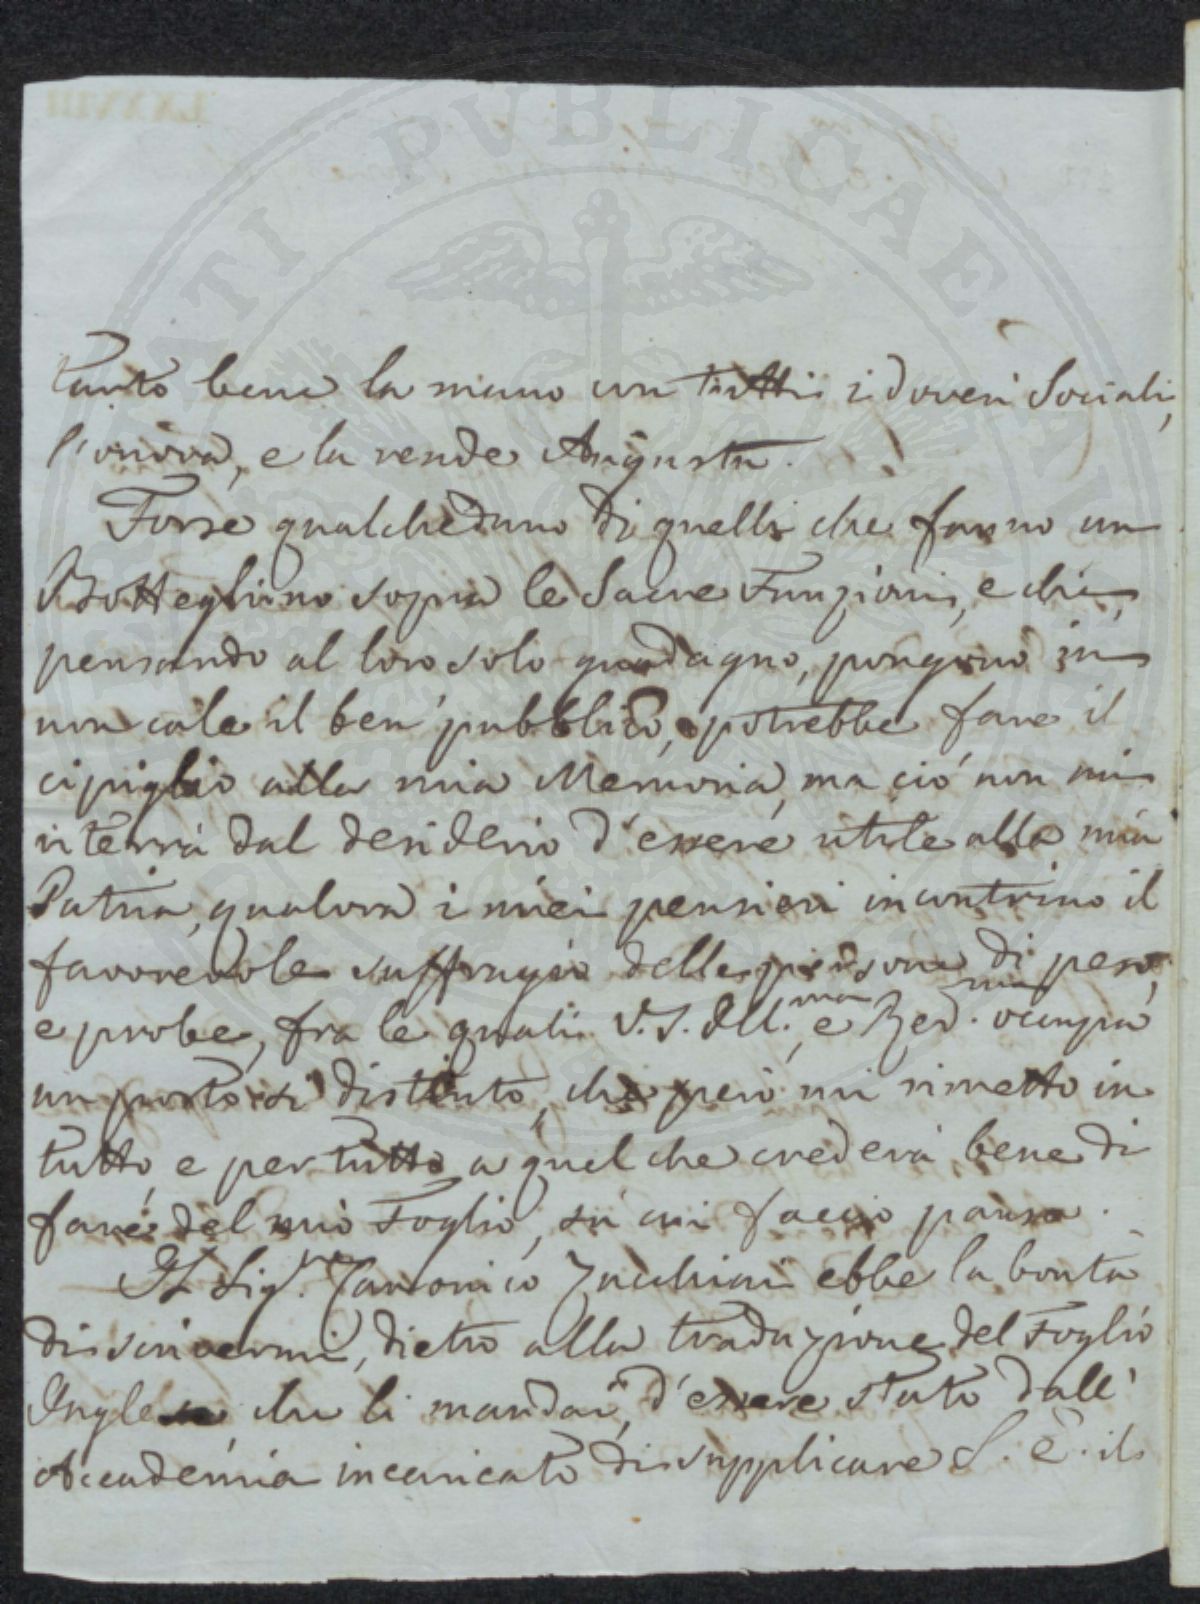 tanto bene la mano con tutti i doveri Sociali,
l'onora, e la rende Augusta.
Forse qualcheduno di quelli che fanno un
Botteghino sopra le Sacre Funzioni, e che,
pensando al loro solo guadagno, pongono in
non cale il ben pubblico, potrebbe fare il
cipiglio alla mia Memoria, ma ciò non mi
riterrà dal desiderio d'essere utile alla mia
Patria, qualora i miei pensieri incontrino il
favorevole suffragio delle persone di peso,
e probe, fra le quali V.S. Ill.ma e Red.ma occupa
un posto sì distinto, che però mi rimetto in
tutto, e per tutto a quel che crederà bene di
fare del mio Foglio, su cui faccio pausa.
Il Sig.re Canonico Zucchini ebbe la bontà
di scrivermi, dietro alla traduzione del Foglio
Inglese, che li mandai, d'essere stato dall'
Accademia incaricato di supplicare S. E. il
PUBLICAE